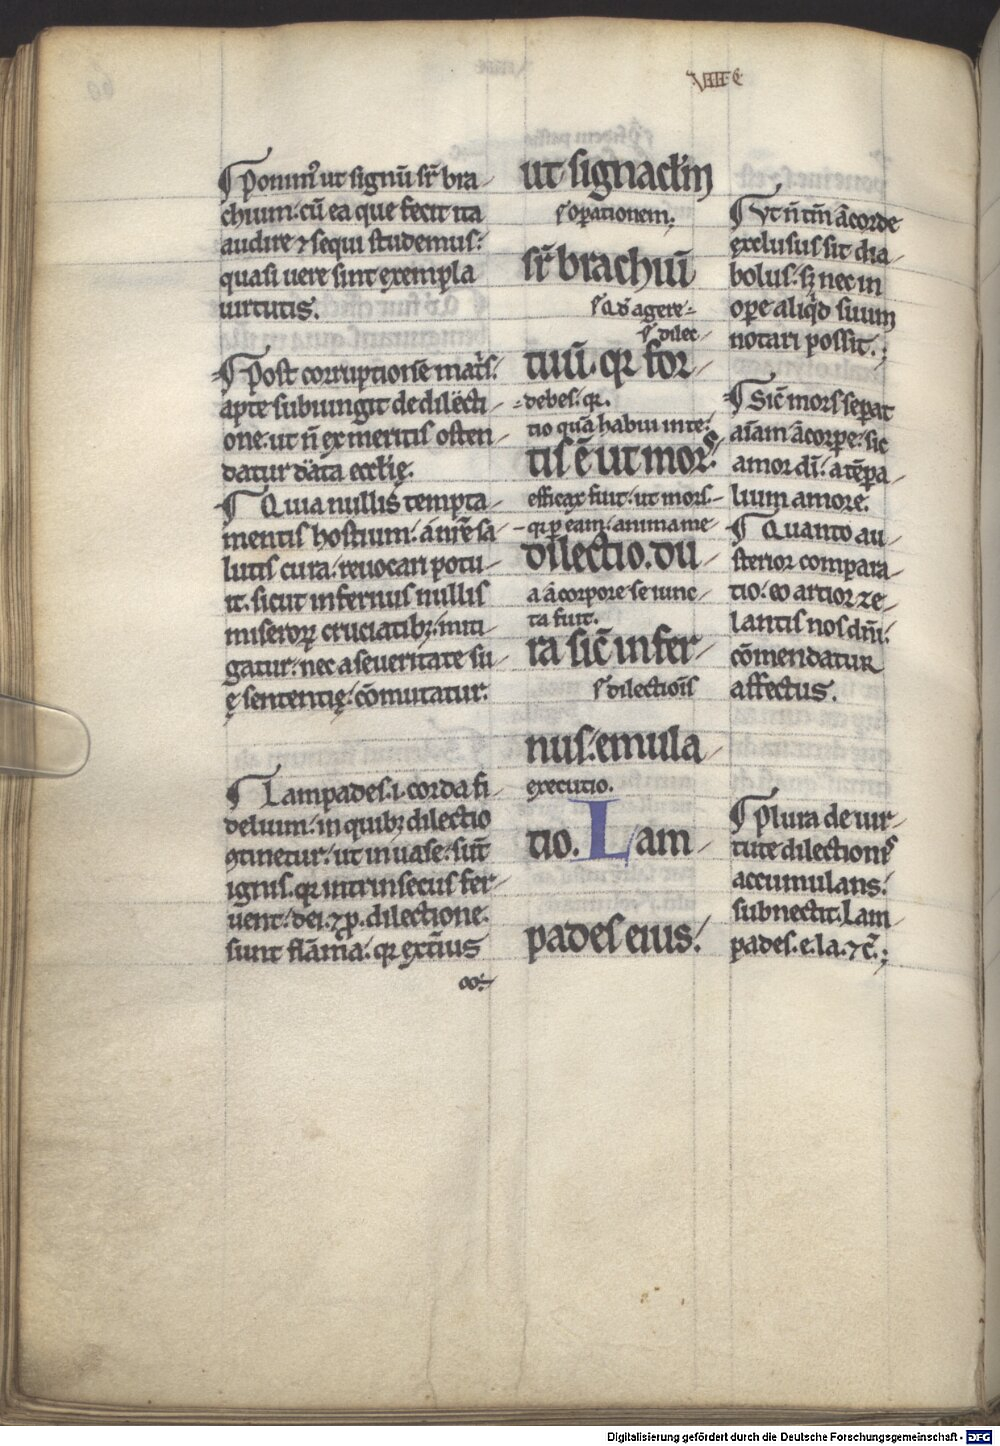 VIIII C
¶ Ponimꝰ ut signū sr̄ bra-
chium: cū ea que fecit ita
audire ⁊ sequi studemus:
quasi uere sint exempla
uirtutis.
¶ Post corruptionē mat̄s:
apte subiungit de dilecti-
one: ut n̄ ex meritis osten-
datur data ecclīę.
¶ Quia nullis tempta-
mentis hostium: a nr̄e sa-
lutis cura: reuocari potu-
it. sicut infernus nullis
miseroꝝ cruciatibꝫ miti-
gatur: nec a seueritate su-
ę sententię: cōmutatur.
¶ Lampades .i. corda fi-
delium: in quibꝫ dilectio
ꝯtinetur: ut in uase: sūt
ignis. qr intrinsecus fer-
uent: dei. ⁊ ꝓ. dilectione.
sunt flāma: qr exterius
oo:-
ut signaclm̄
s operationem:
sr̄ brachiū
s Qd̄ agere-
s dilec-
tuū. qr for-
debes. qr.
tio quā habui in te:
tis ē ut mors:
efficax fuit: ut mors-
-qr ꝑ eam: anima me-
dilectio. du-
a a corpore se iunc-
ta fuit.
ra sic̄ infer-
s dilectiōis
nus: emula-
executio.
tio. Lam-
pades eius:
¶ Vt n̄ tm̄ a corde
exclusus sit dia-
bolus: sꝫ nec in
ope aliqd suum
notari possit.;
¶ Sic̄ mors separat
aīam a corpe: sic
amor dī: a tēpa-
lium amore.
¶ Quanto au-
sterior compara-
tio: eo artior ze-
lantis nos dnī:
cōmendatur
affectus.
¶ Plura de uir-
tute dilectionis
accumulans:
subnectit. Lam-
pades. e. la. ⁊c̄.;
Digitalisierung gefördert durch die Deutsche Forschungsgemeinschaft - DFG